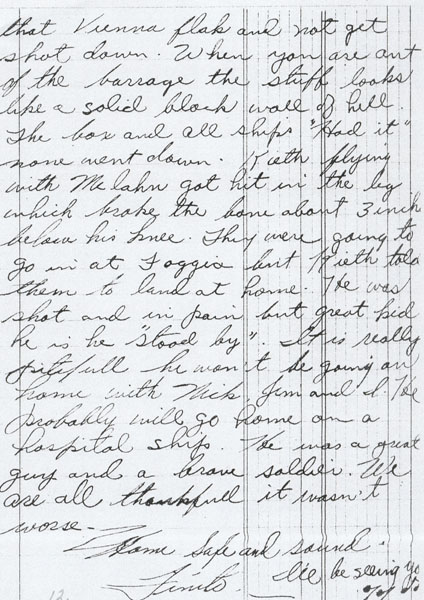 that Vienna flak and not get
shot down. When you are out
of the barrage the stuff looks
like a solid black wall of hell.
The box and all ships "Had it"
none went down. Rieth flying
with McLahn got hit in the leg
which broke the bone about 3 inch
below his knee. They were going to
go in at Foggia but Rieth told
them to land at home. He was
shot and in pain but great kid
he is he "stood by". It is really
pitifull he won't be going on
home with Nick, Jim and I. He
probably will go home on a
hospital ship. He was a great
guy and a brave soldier. We
are all thankfull it wasn't
worse-
Home Safe and sound.
Finito. I'll be seeing yo
12.